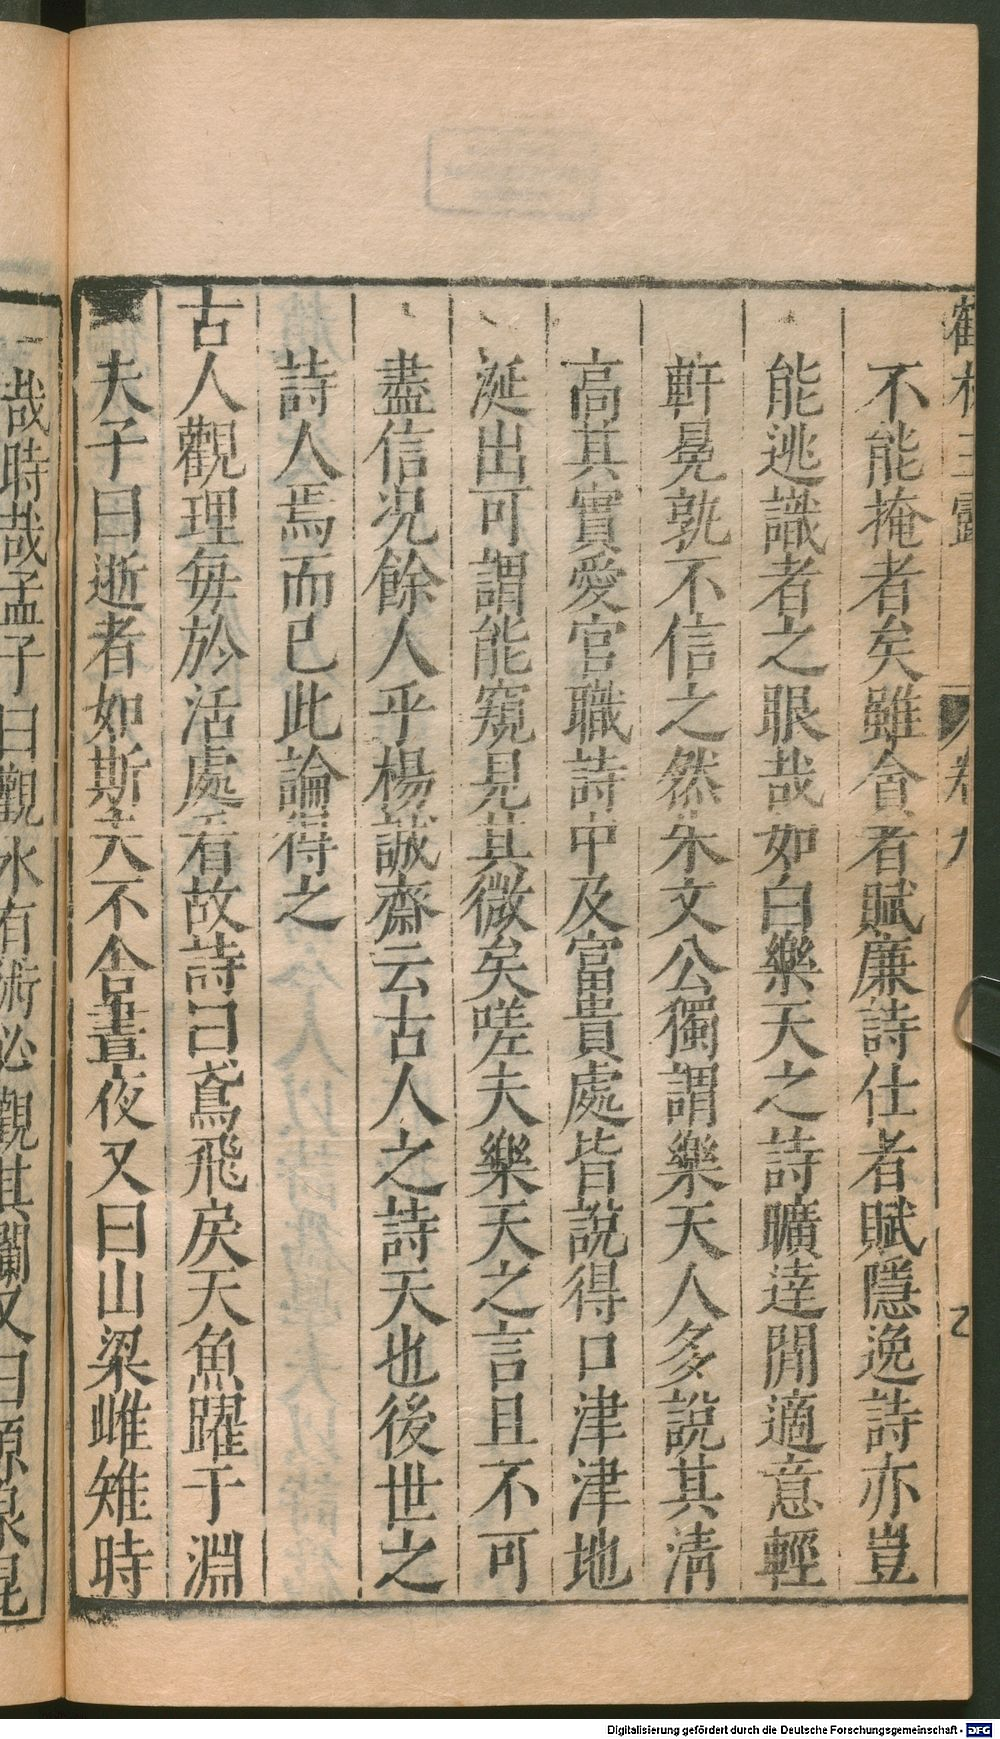 鶴林玉露　卷九
不能掩者矣雖貪者賦廉詩仕者賦隱逸詩亦豈
能逃識者之眼哉如白樂天之詩曠達閒適意輕
軒冕孰不信之然朱文公獨謂樂天人多說其清
高其實愛官職詩中及富貴處皆說得口津津地
涎出可謂能窺見其微矣嗟夫樂天之言且不可
盡信況餘人乎楊誠齋云古人之詩天也後世之
詩人焉而已此論得之
古人觀理每於活處看故詩曰鳶飛戾天魚躍于淵
夫子曰逝者如斯夫不舍晝夜又曰山梁雌雉時
哉時哉孟子曰觀水有術必觀其瀾又曰源泉混
Digitalisierung gefördert durch die Deutsche Forschungsgemeinschaft - DFG